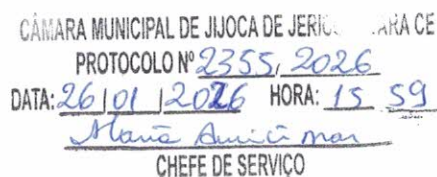 CÂMARA MUNICIPAL DE JIJOCA DE JERI ARA CE
PROTOCOLO Nº 2355, 2026
DATA: 26 | 01 | 2026 HORA: 15 59
Maria
CHEFE DE SERVIÇO